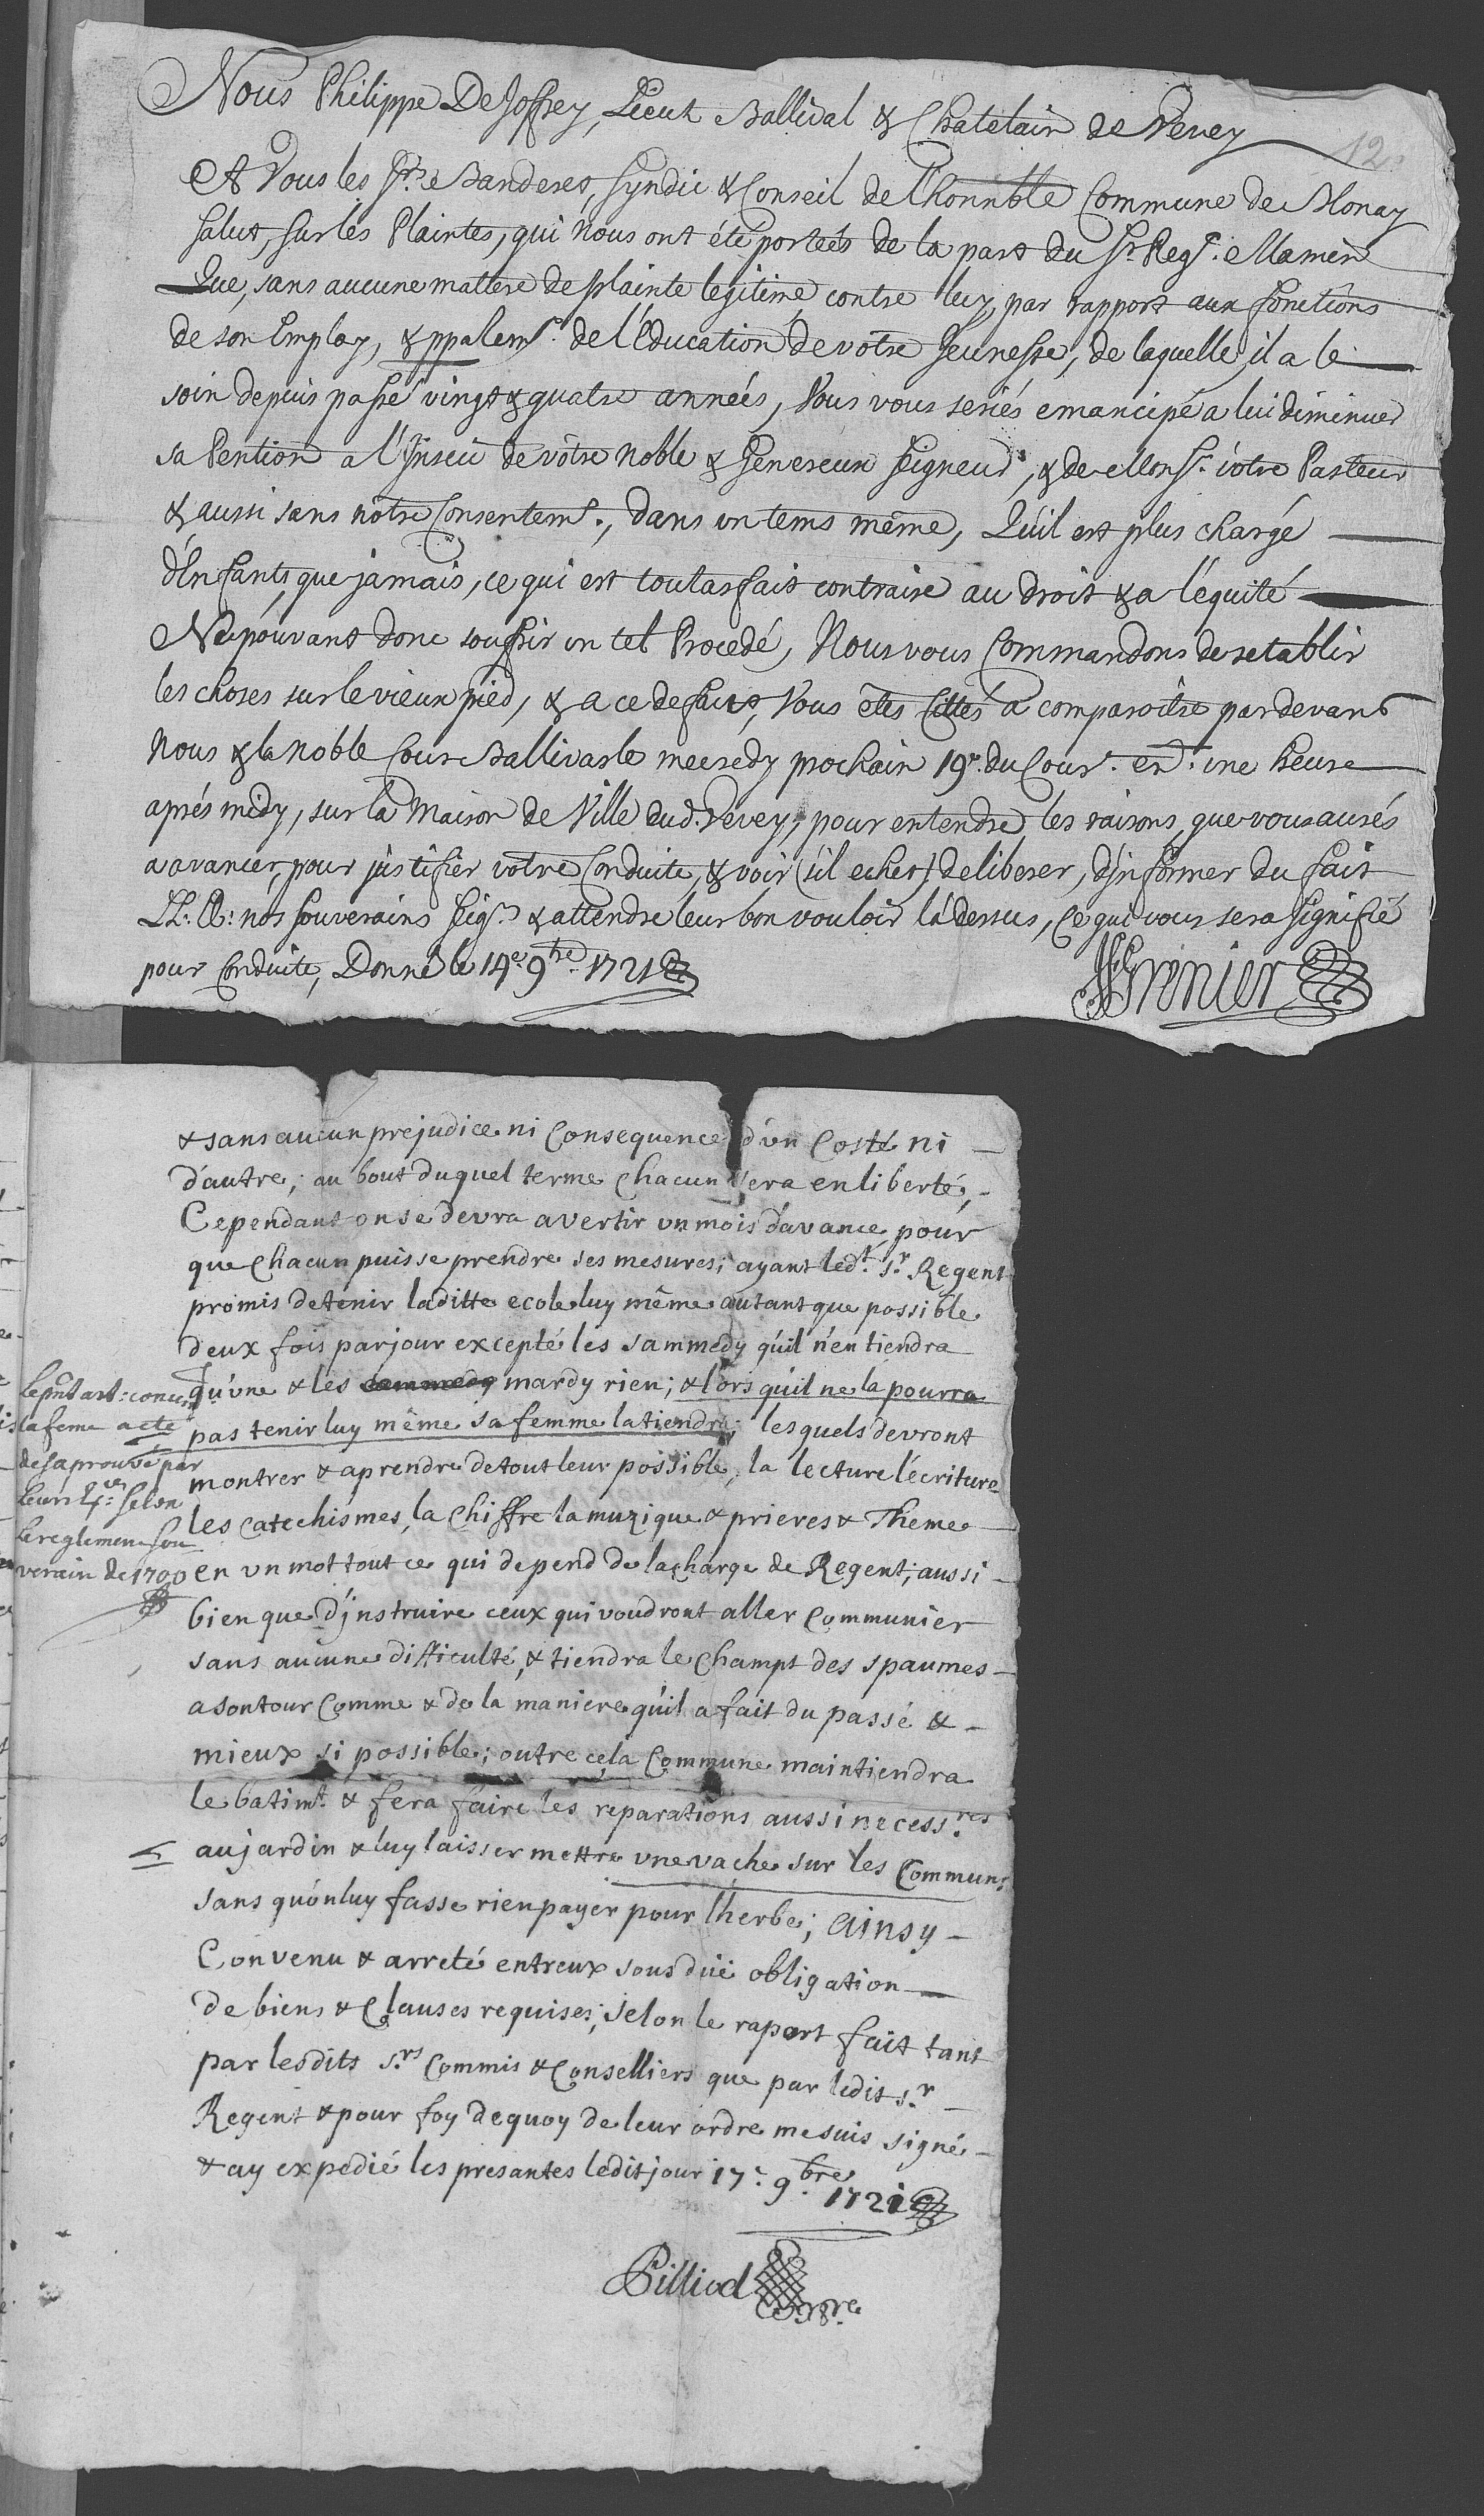 Nous Philippe DeJoffrey, Lieut Ballival & Chatelain de Vevey
12.
A Vous les Srs. Banderet, Syndic & Conseil de l'honnble Commune de Blonay
Salut, sur les Plaintes, qui Nous ont été porteés de la part du Sr. Regt. Mamin
Que, sans aucune mattere de plainte legitime contre luy, par rapport aux fonctions
de son Employ, & ppalemt. de l'Education de vôtre Jeunesse, de laquelle il a le
soin depuis passé vingt & quatre anneés, Vous vous seriés emancipé a lui diminuer
sa Pention a l'Inseu de vôtre Noble & Genereux Seigneur, & de Monsr. vôtre Pasteur
& aussi sans nôtre Consentemt., dans un tems même, Qu'il est plus chargé
d'Enfants que jamais, ce qui est toutasfait contraire au droit & a l'équité
Ne pouvant donc souffrir un tel Procedé, Nous vous Commandons de retablir
les choses sur le vieux pied, & a ce defaut, Vous etes Cittés a comparoitre par devant
Nous & la Noble Cour Ballivale mecredy prochain 19e. du Cour. en. une heure
aprés midy, sur la Maison de Ville dud. Vevey, pour entendre les raisons que vous aurés
a avancer, pour justifier votre Conduite, & voir (s'il echet) deliberer, d'informer du fait
LL: EE: nos Souverains Seigrs & attendre leur bon vouloir lá dessus, Ce qui vous sera signifié
pour Conduite, Donné le 14e. 9bre. 1721
Grenier
& sans aucun prejudice ni Consequence d'un Costé ni
d'autre; au bout duquel terme Chacun sera en liberté;
Cependant on se devra avertir un mois d'avance pour
que Chacun puisse prendre ses mesures; ayant ledt. sr. Regent
promis de tenir laditte ecole luy même autant que possible
deux fois par jour excepté les sammedy qu'il n'en tiendra
qu'une & les sammedy mardy rien; & lors qu'il ne la pourra
pas tenir luy même sa femme la tiendra; lesquels devront
montrer & aprendre de tout leur possible, la lecture l'écriture
les Catechismes, la Chiffre la muzique & prieres & Theme
en un mot tout ce qui depend de la charge de Regent; aussi
bien que d'jnstruire ceux qui voudront aller Communier
sans aucune difficulté, & tiendra le Champt des spaumes
a son tour Comme & de la maniere qu'il a fait du passé &
mieux si possible; outre cela Commune maintiendra
le batimt. & fera faire les reparations aussi necessres.
au jardin & luy laisser mettre une vache sur les Communs
sans qu'on luy fasse rien payer pour l'herbe; Ainsy
Convenu & arreté entreux sous düe obligation
de biens & Clauses requises; selon le raport fait tant
par lesdits srs. Commis & Conselliers que par ledit sr.
Regent & pour foy dequoy de leur ordre me suis signé
& ay expedié les presantes ledit jour 17e. 9bre. 1721
Pilliod
le pnt art: concernt.
la feme a eté
desaprouvé par
leurs Eces. selon
le reglement sou
verain de 1700